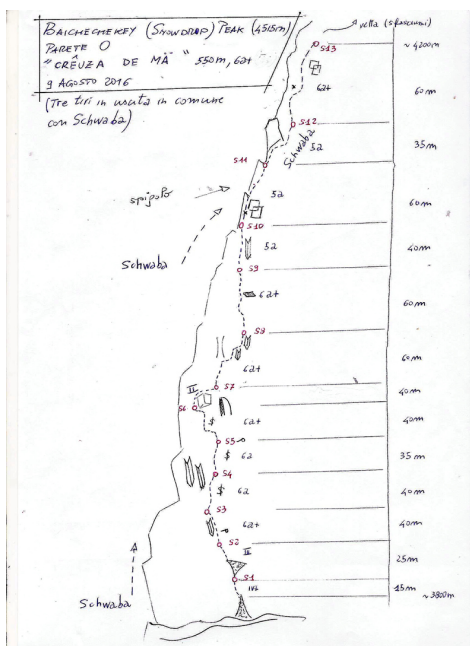 BAICHECHEKEY (SNOWDROP) PEAK (4515m)
PARETE O
"CRÊUZA DE MÄ" 550m, 6a+
9 AGOSTO 2016
(Tre tiri in uscita in comune
con Schwaba)
vetta (sfasciumi)
S13
~ 4200m
6a+
60m
S12
Schwaba
5a
35m
S11
spigolo
5a
60m
S10
Schwaba
5a
40m
S9
6a+
60m
S8
60m
6a+
S7
II
40m
S6
$
6a+
40m
S5
$
6a
35m
S4
$
6a
40m
S3
6a+
40m
S2
II
25m
Schwaba
S1
15m
~ 3800m